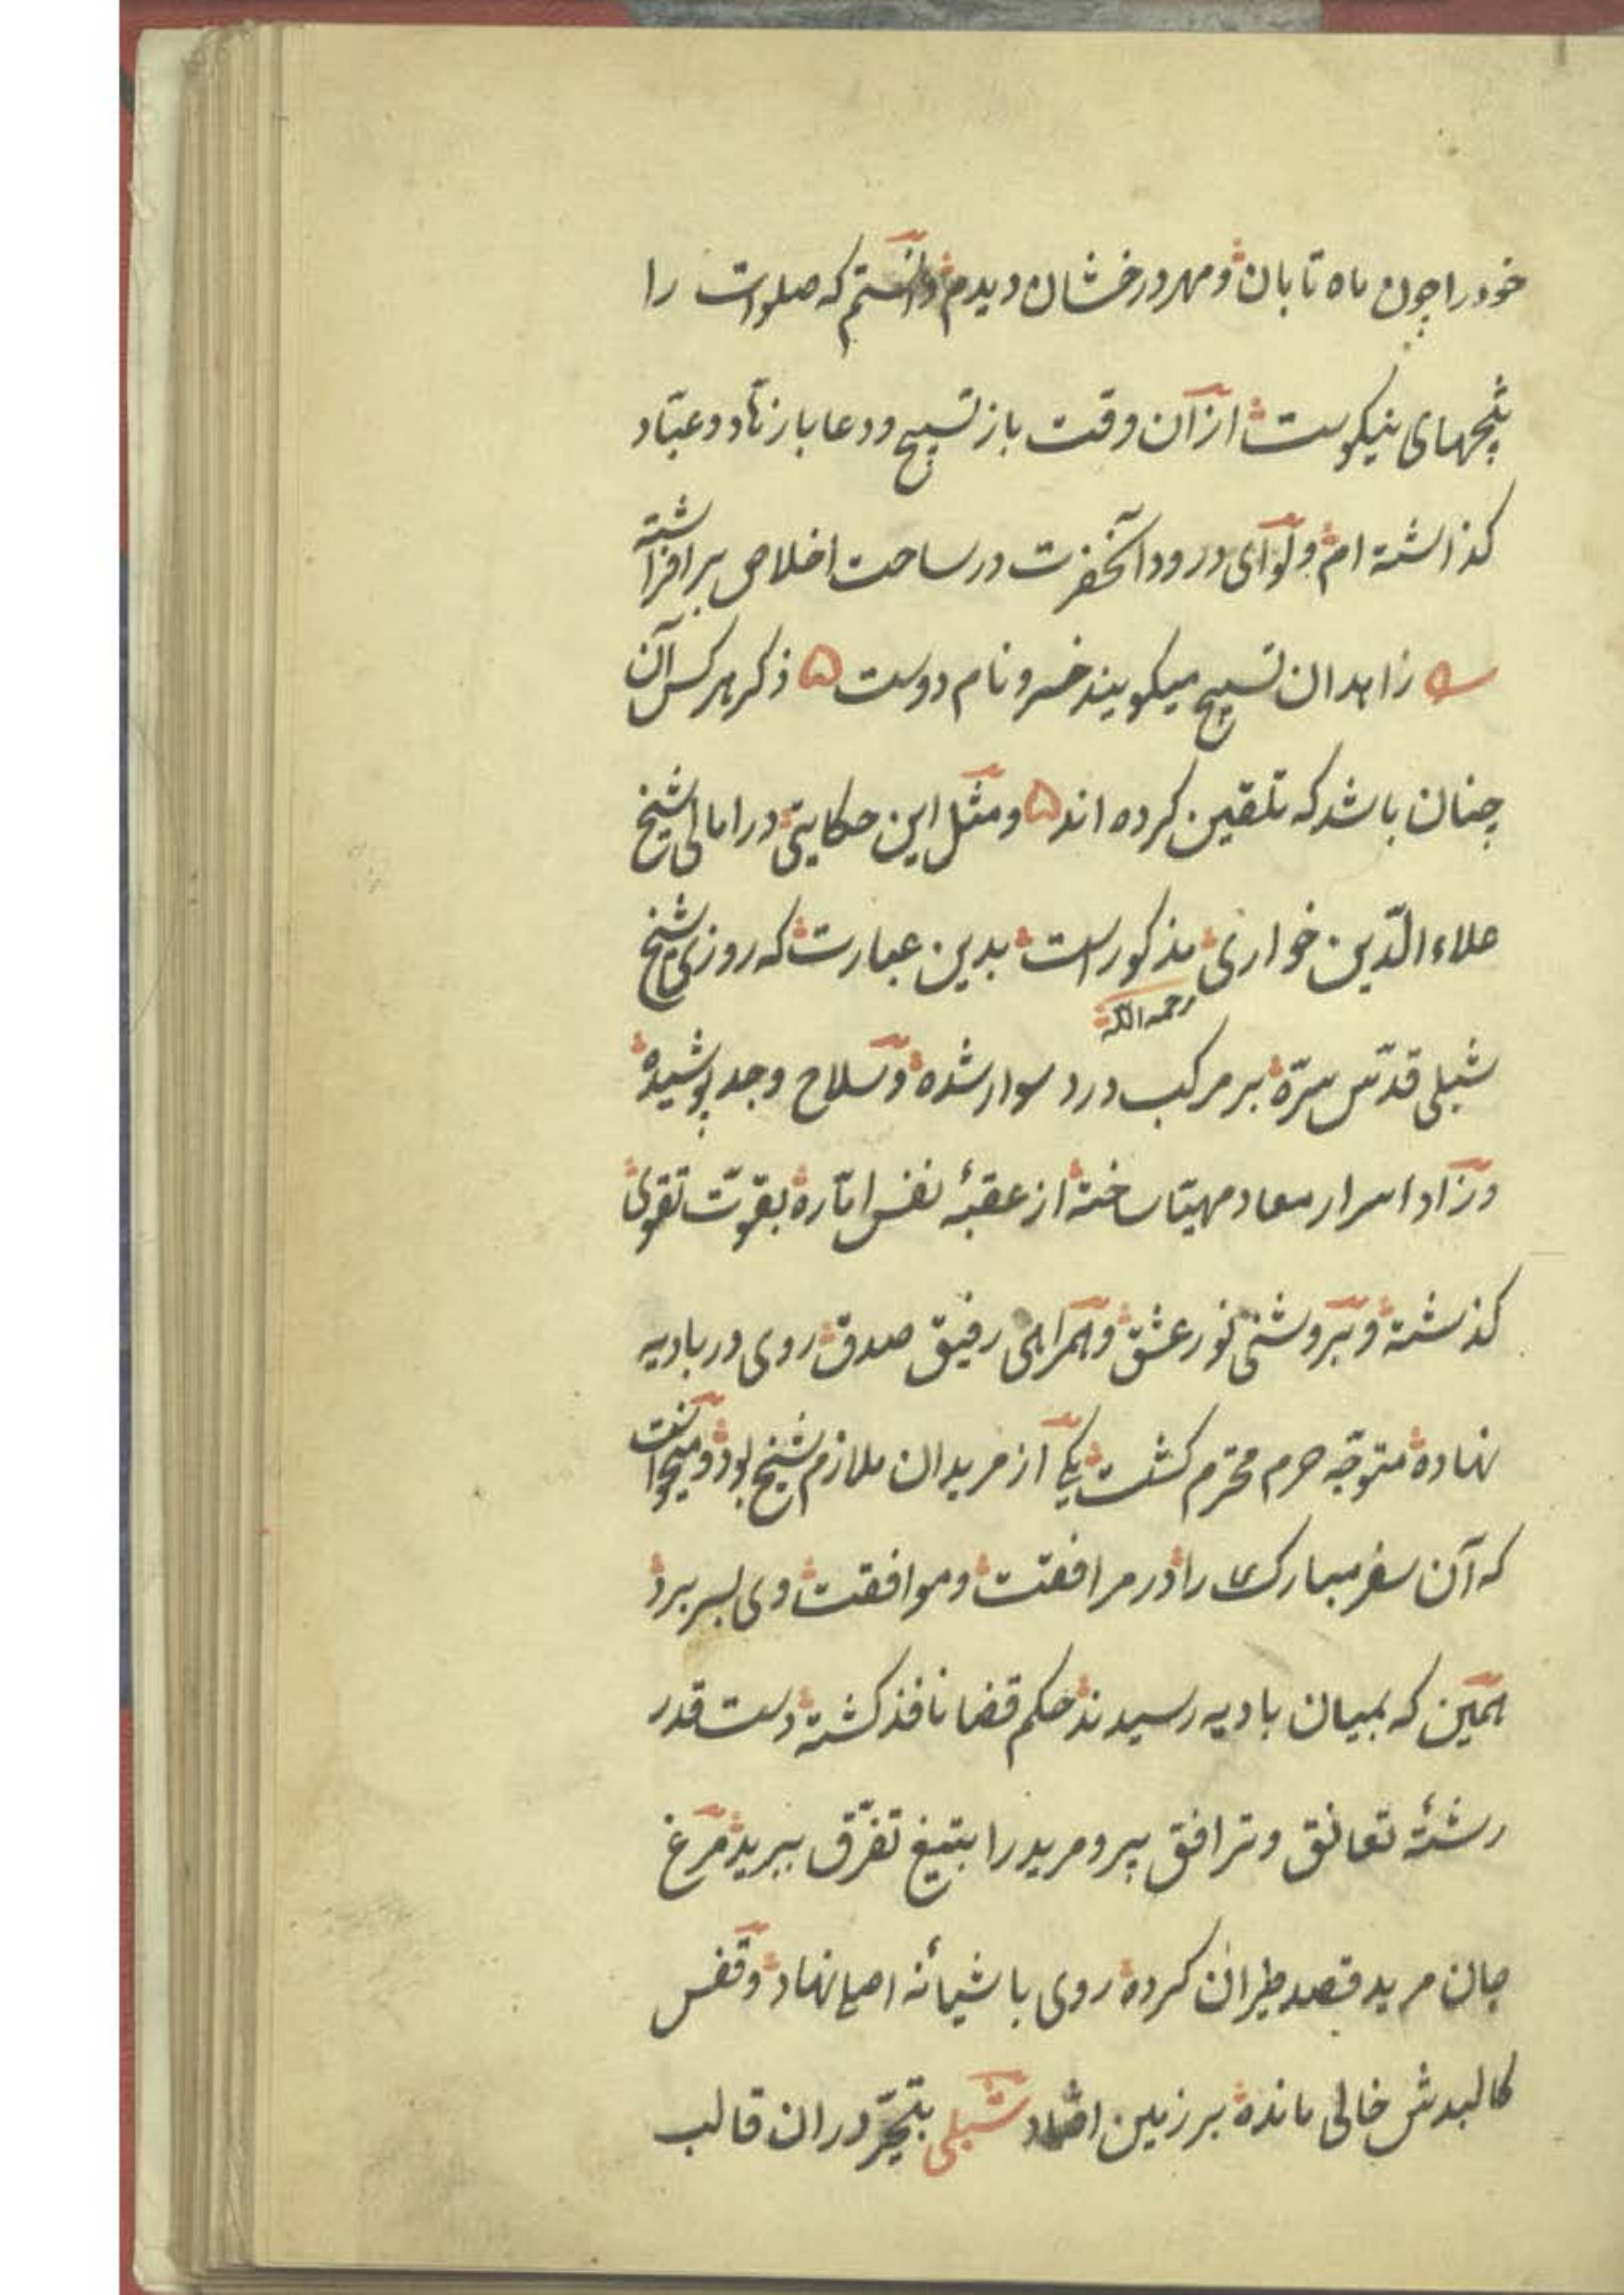 خود را چون ماه تابان و مهر درخشان دیدم دانستم که صلوات را
نتیجهای نیکوست از آن وقت باز تسبیح و دعا با زهّاد و عبّاد
کذاشته ام و لوای درود آنحضرت در ساحت اخلاص برافراشته
زاهدان تسبیح میکویند خسرو نام دوست ذکر هر کس آن
چنان باشد که تلقین کرده اند و مثل این حکایتی در امالی شیخ
علاء الدّین خواری مذکور است بدین عبارت که روزی شیخ
رحمه الله
شبلی قدّس سرّه بر مرکب درد سوار شده و سلاح وجد پوشیده
و زاد اسرار معاد مهیّا ساخته از عقبۀ نفس امّاره بقوّت تقوی
کذشته و بروشنی نور عشق و همراهی رفیق صدق روی در بادیه
نهاده متوجّه حرم محترم کشت یکی از مریدان ملازم شیخ بود و میخواست
که آن سفر مبارک را در مرافقت و موافقت وی بسر برد
همین که بمیان بادیه رسیدند حکم قضا نافذ کشته دست قدر
رشتۀ تعانق و ترافق پیر و مرید را بتیغ تفرّق ببرید مرغ
جان مرید قصد طیران کرده روی باشیانۀ اصلی نهاد و قفس
کالبدش خالی مانده بر زمین افتاد شبلی بتحیّر در ان قالب